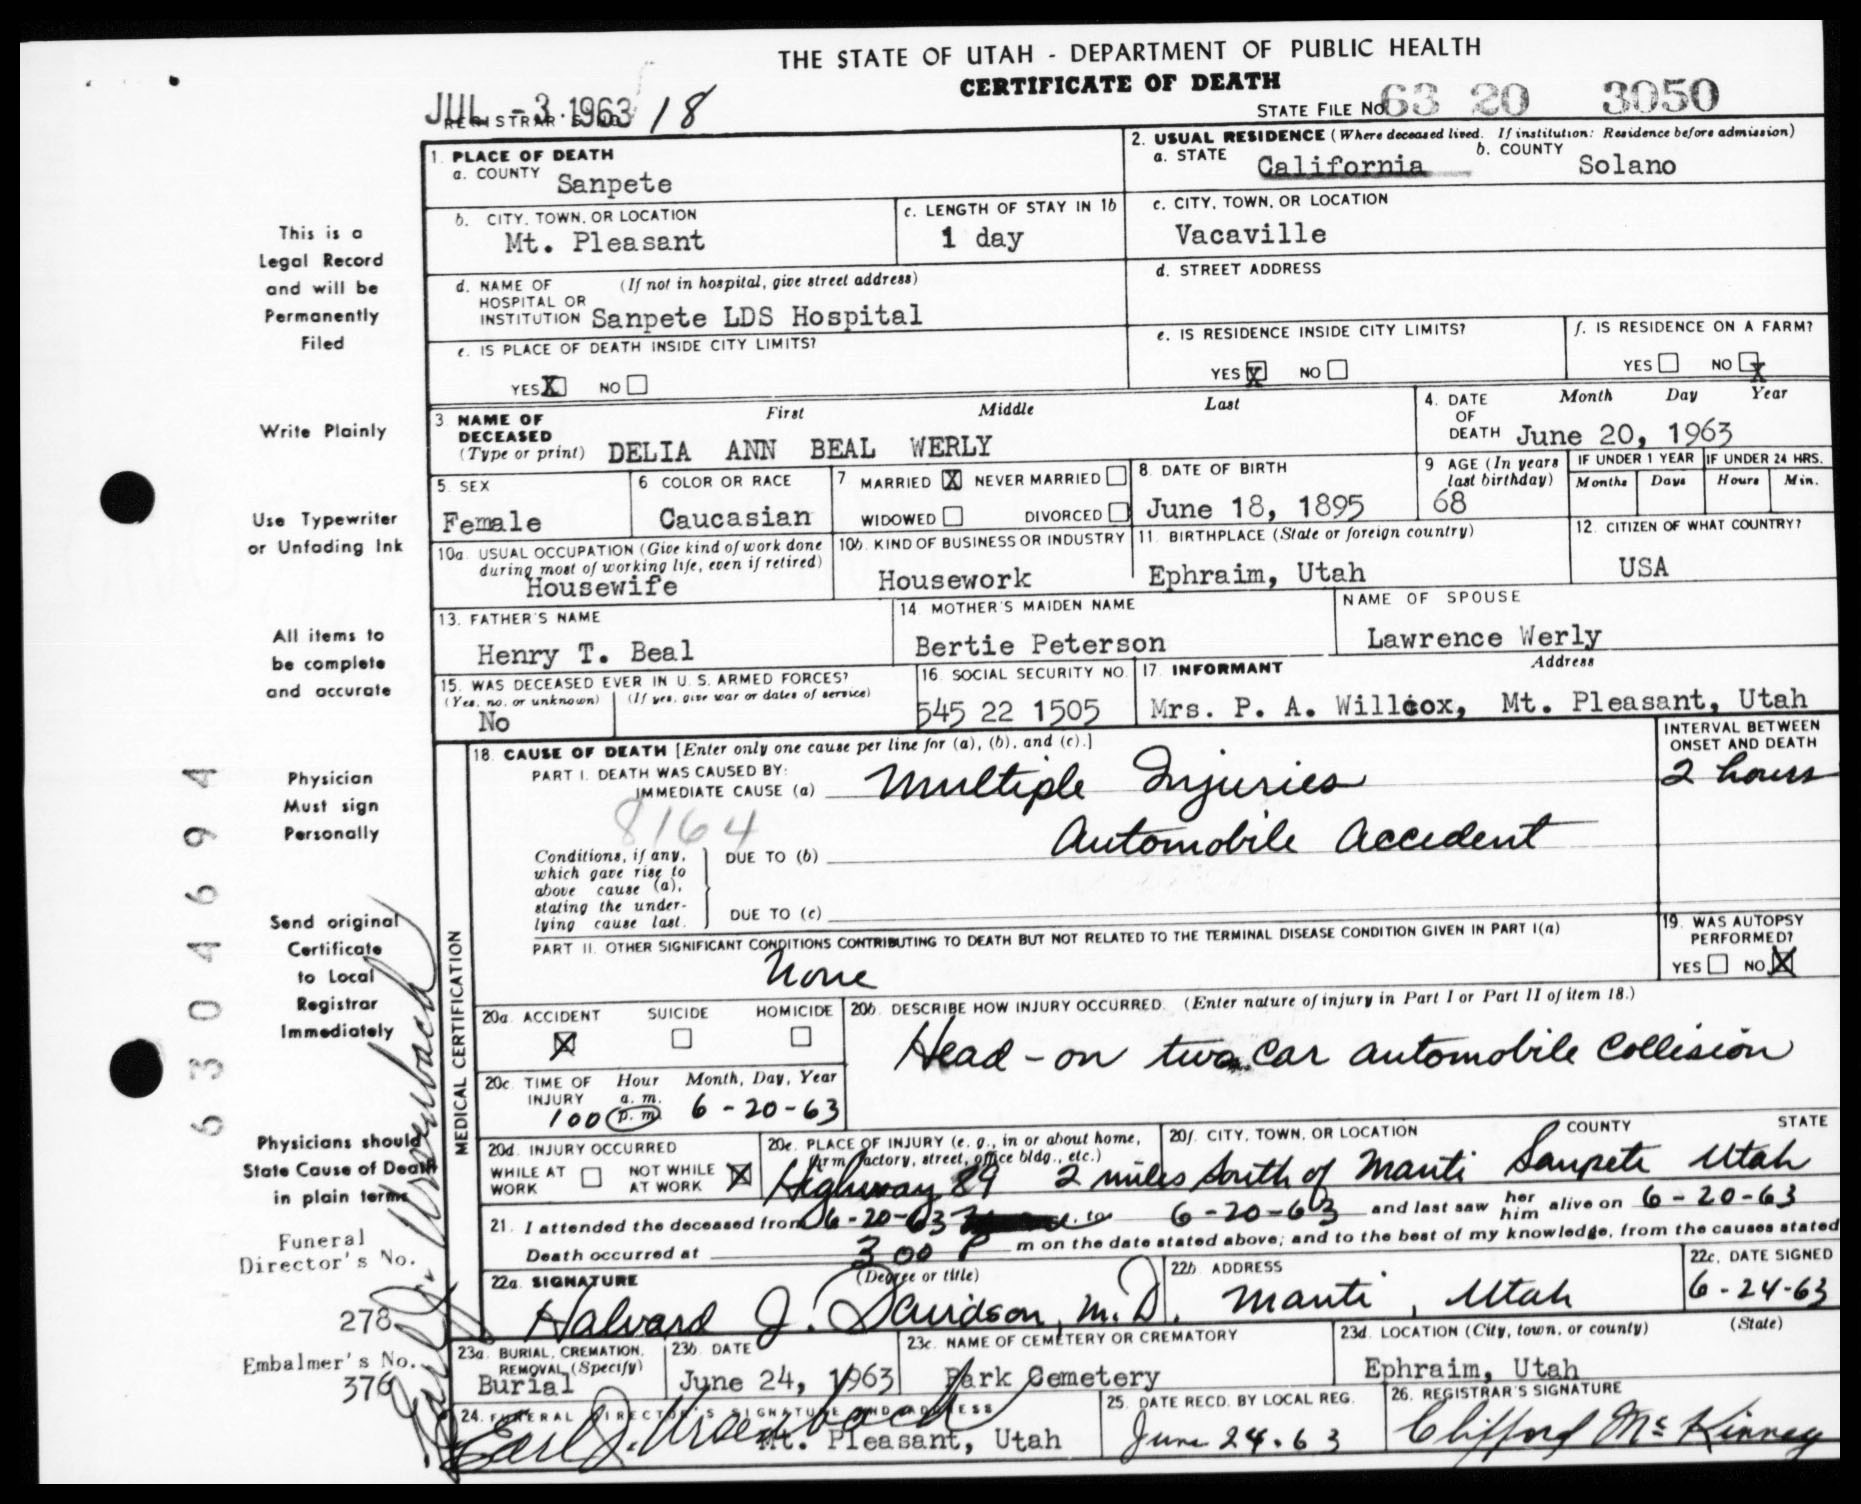 THE STATE OF UTAH - DEPARTMENT OF PUBLIC HEALTH
CERTIFICATE OF DEATH
JUL -3 1963
REGISTRAR'S NO. 18
STATE FILE NO. 63 20 3050
1. PLACE OF DEATH
a. COUNTY Sanpete
2. USUAL RESIDENCE (Where deceased lived. If institution: Residence before admission)
a. STATE California b. COUNTY Solano
b. CITY, TOWN, OR LOCATION Mt. Pleasant
c. LENGTH OF STAY IN 1b 1 day
c. CITY, TOWN, OR LOCATION Vacaville
d. NAME OF HOSPITAL OR INSTITUTION (If not in hospital, give street address) Sanpete LDS Hospital
d. STREET ADDRESS
e. IS PLACE OF DEATH INSIDE CITY LIMITS?
YES X NO
e. IS RESIDENCE INSIDE CITY LIMITS?
YES X NO
f. IS RESIDENCE ON A FARM?
YES NO X
3. NAME OF DECEASED (Type or print) First Middle Last
DELIA ANN BEAL WERLY
4. DATE OF DEATH Month Day Year
June 20, 1963
5. SEX Female
6 COLOR OR RACE Caucasian
7 MARRIED X NEVER MARRIED
WIDOWED DIVORCED
8. DATE OF BIRTH June 18, 1895
9 AGE (In years last birthday) 68
IF UNDER 1 YEAR Months Days
IF UNDER 24 HRS. Hours Min.
10a. USUAL OCCUPATION (Give kind of work done during most of working life, even if retired) Housewife
10b. KIND OF BUSINESS OR INDUSTRY Housework
11. BIRTHPLACE (State or foreign country) Ephraim, Utah
12. CITIZEN OF WHAT COUNTRY? USA
13. FATHER'S NAME Henry T. Beal
14. MOTHER'S MAIDEN NAME Bertie Peterson
NAME OF SPOUSE Lawrence Werly
15. WAS DECEASED EVER IN U. S. ARMED FORCES?
(Yes, no, or unknown) (If yes, give war or dates of service)
No
16. SOCIAL SECURITY NO. 545 22 1505
17. INFORMANT Address
Mrs. P. A. Willcox, Mt. Pleasant, Utah
MEDICAL CERTIFICATION
18. CAUSE OF DEATH [Enter only one cause per line for (a), (b), and (c).]
INTERVAL BETWEEN ONSET AND DEATH
PART I. DEATH WAS CAUSED BY:
IMMEDIATE CAUSE (a) Multiple Injuries 2 hours
8164
Conditions, if any, which gave rise to above cause (a), stating the underlying cause last.
DUE TO (b) Automobile Accident
DUE TO (c)
PART II. OTHER SIGNIFICANT CONDITIONS CONTRIBUTING TO DEATH BUT NOT RELATED TO THE TERMINAL DISEASE CONDITION GIVEN IN PART I(a)
None
19. WAS AUTOPSY PERFORMED?
YES NO X
20a. ACCIDENT X SUICIDE HOMICIDE
20b. DESCRIBE HOW INJURY OCCURRED. (Enter nature of injury in Part I or Part II of item 18.)
Head-on two car automobile collision
20c. TIME OF INJURY Hour a. m. p. m. Month, Day, Year
1 00 6-20-63
20d. INJURY OCCURRED
WHILE AT WORK NOT WHILE AT WORK X
20e. PLACE OF INJURY (e. g., in or about home, farm, factory, street, office bldg., etc.)
Highway 89
20f. CITY, TOWN, OR LOCATION COUNTY STATE
2 miles South of Manti Sanpete Utah
21. I attended the deceased from 6-20-63 to 6-20-63 and last saw her him alive on 6-20-63
Death occurred at 3 00 P m on the date stated above; and to the best of my knowledge, from the causes stated
22a. SIGNATURE (Degree or title)
Halvard J. Davidson, M.D.
22b. ADDRESS Manti, Utah
22c. DATE SIGNED 6-24-63
23a. BURIAL, CREMATION, REMOVAL (Specify) Burial
23b. DATE June 24, 1963
23c. NAME OF CEMETERY OR CREMATORY Park Cemetery
23d. LOCATION (City, town, or county) (State)
Ephraim, Utah
24. FUNERAL DIRECTOR'S SIGNATURE AND ADDRESS
Earl J.
Mt. Pleasant, Utah
25. DATE RECD. BY LOCAL REG. June 24.63
26. REGISTRAR'S SIGNATURE Clifford McKinney
This is a
Legal Record
and will be
Permanently
Filed
Write Plainly
Use Typewriter
or Unfading Ink
All items to
be complete
and accurate
Physician
Must sign
Personally
Send original
Certificate
to Local
Registrar
Immediately
Physicians should
State Cause of Death
in plain terms
Funeral
Director's No.
278
Embalmer's No.
376
6304694